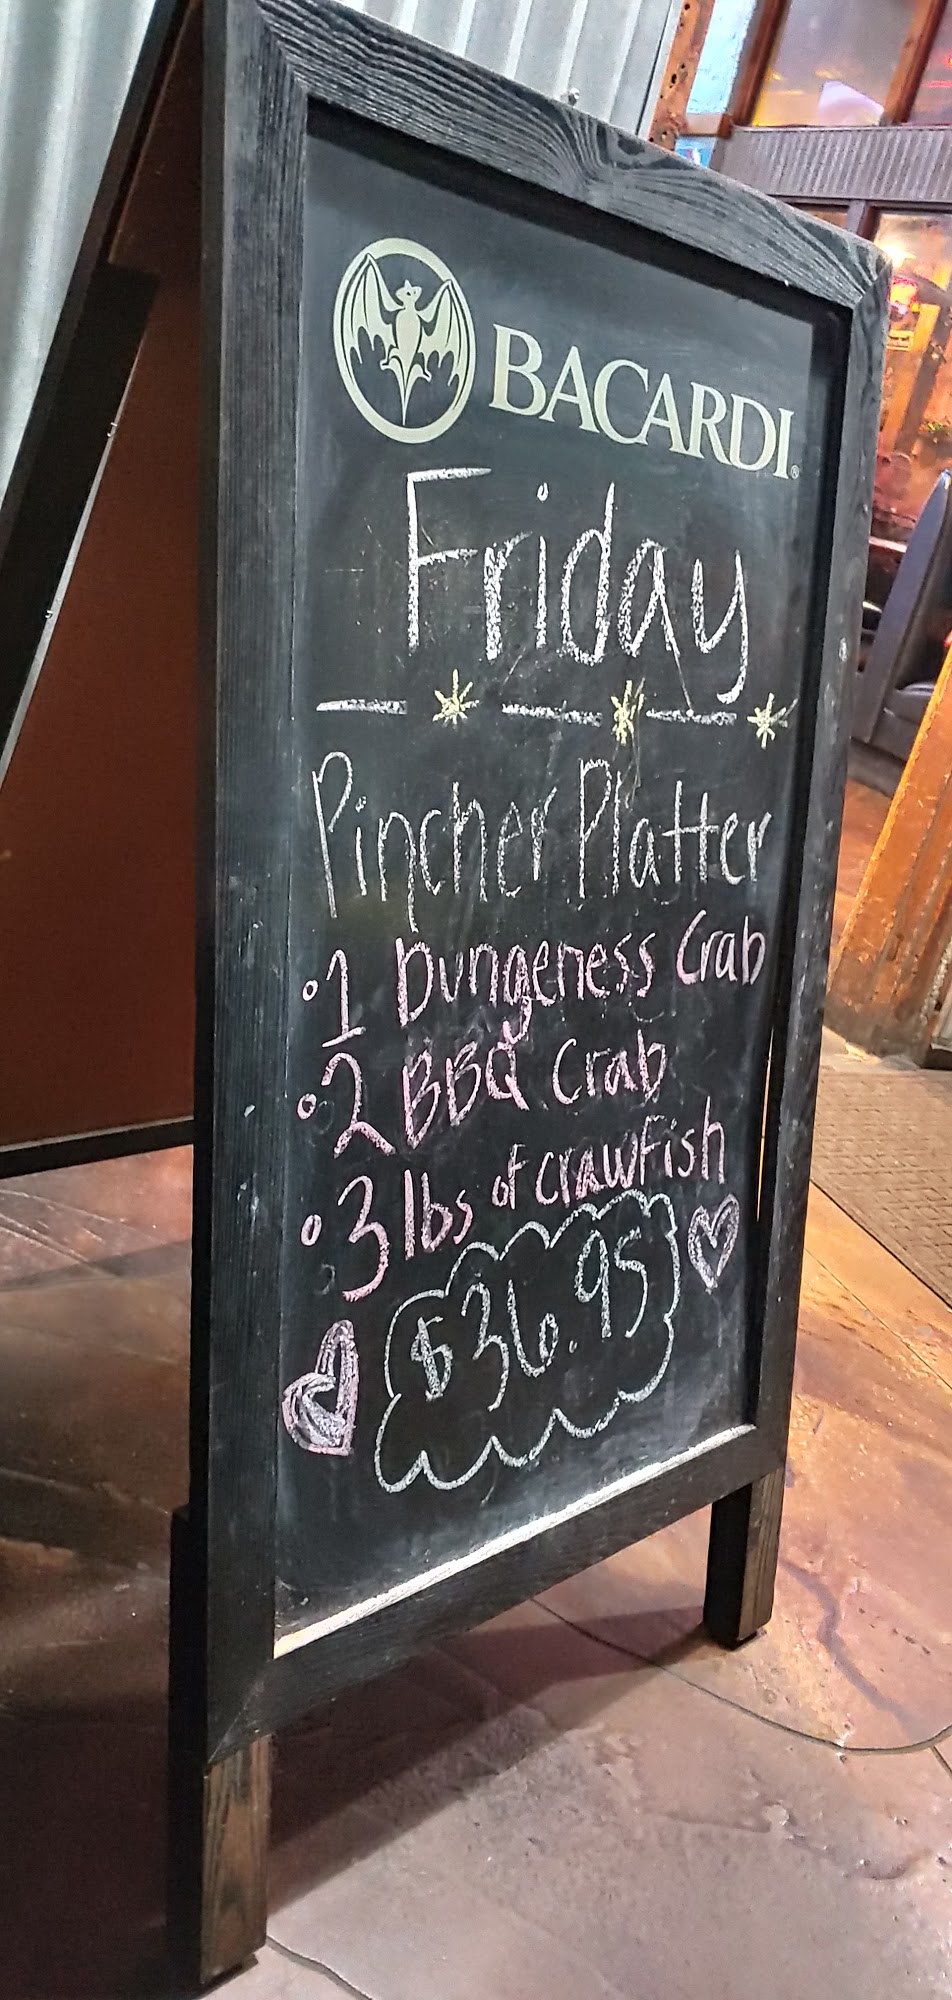 BACARDI®
Friday
Pincher Platter
• 1 Dungeness Crab
• 2 BBQ Crab
• 3 lbs of crawfish
$36.95